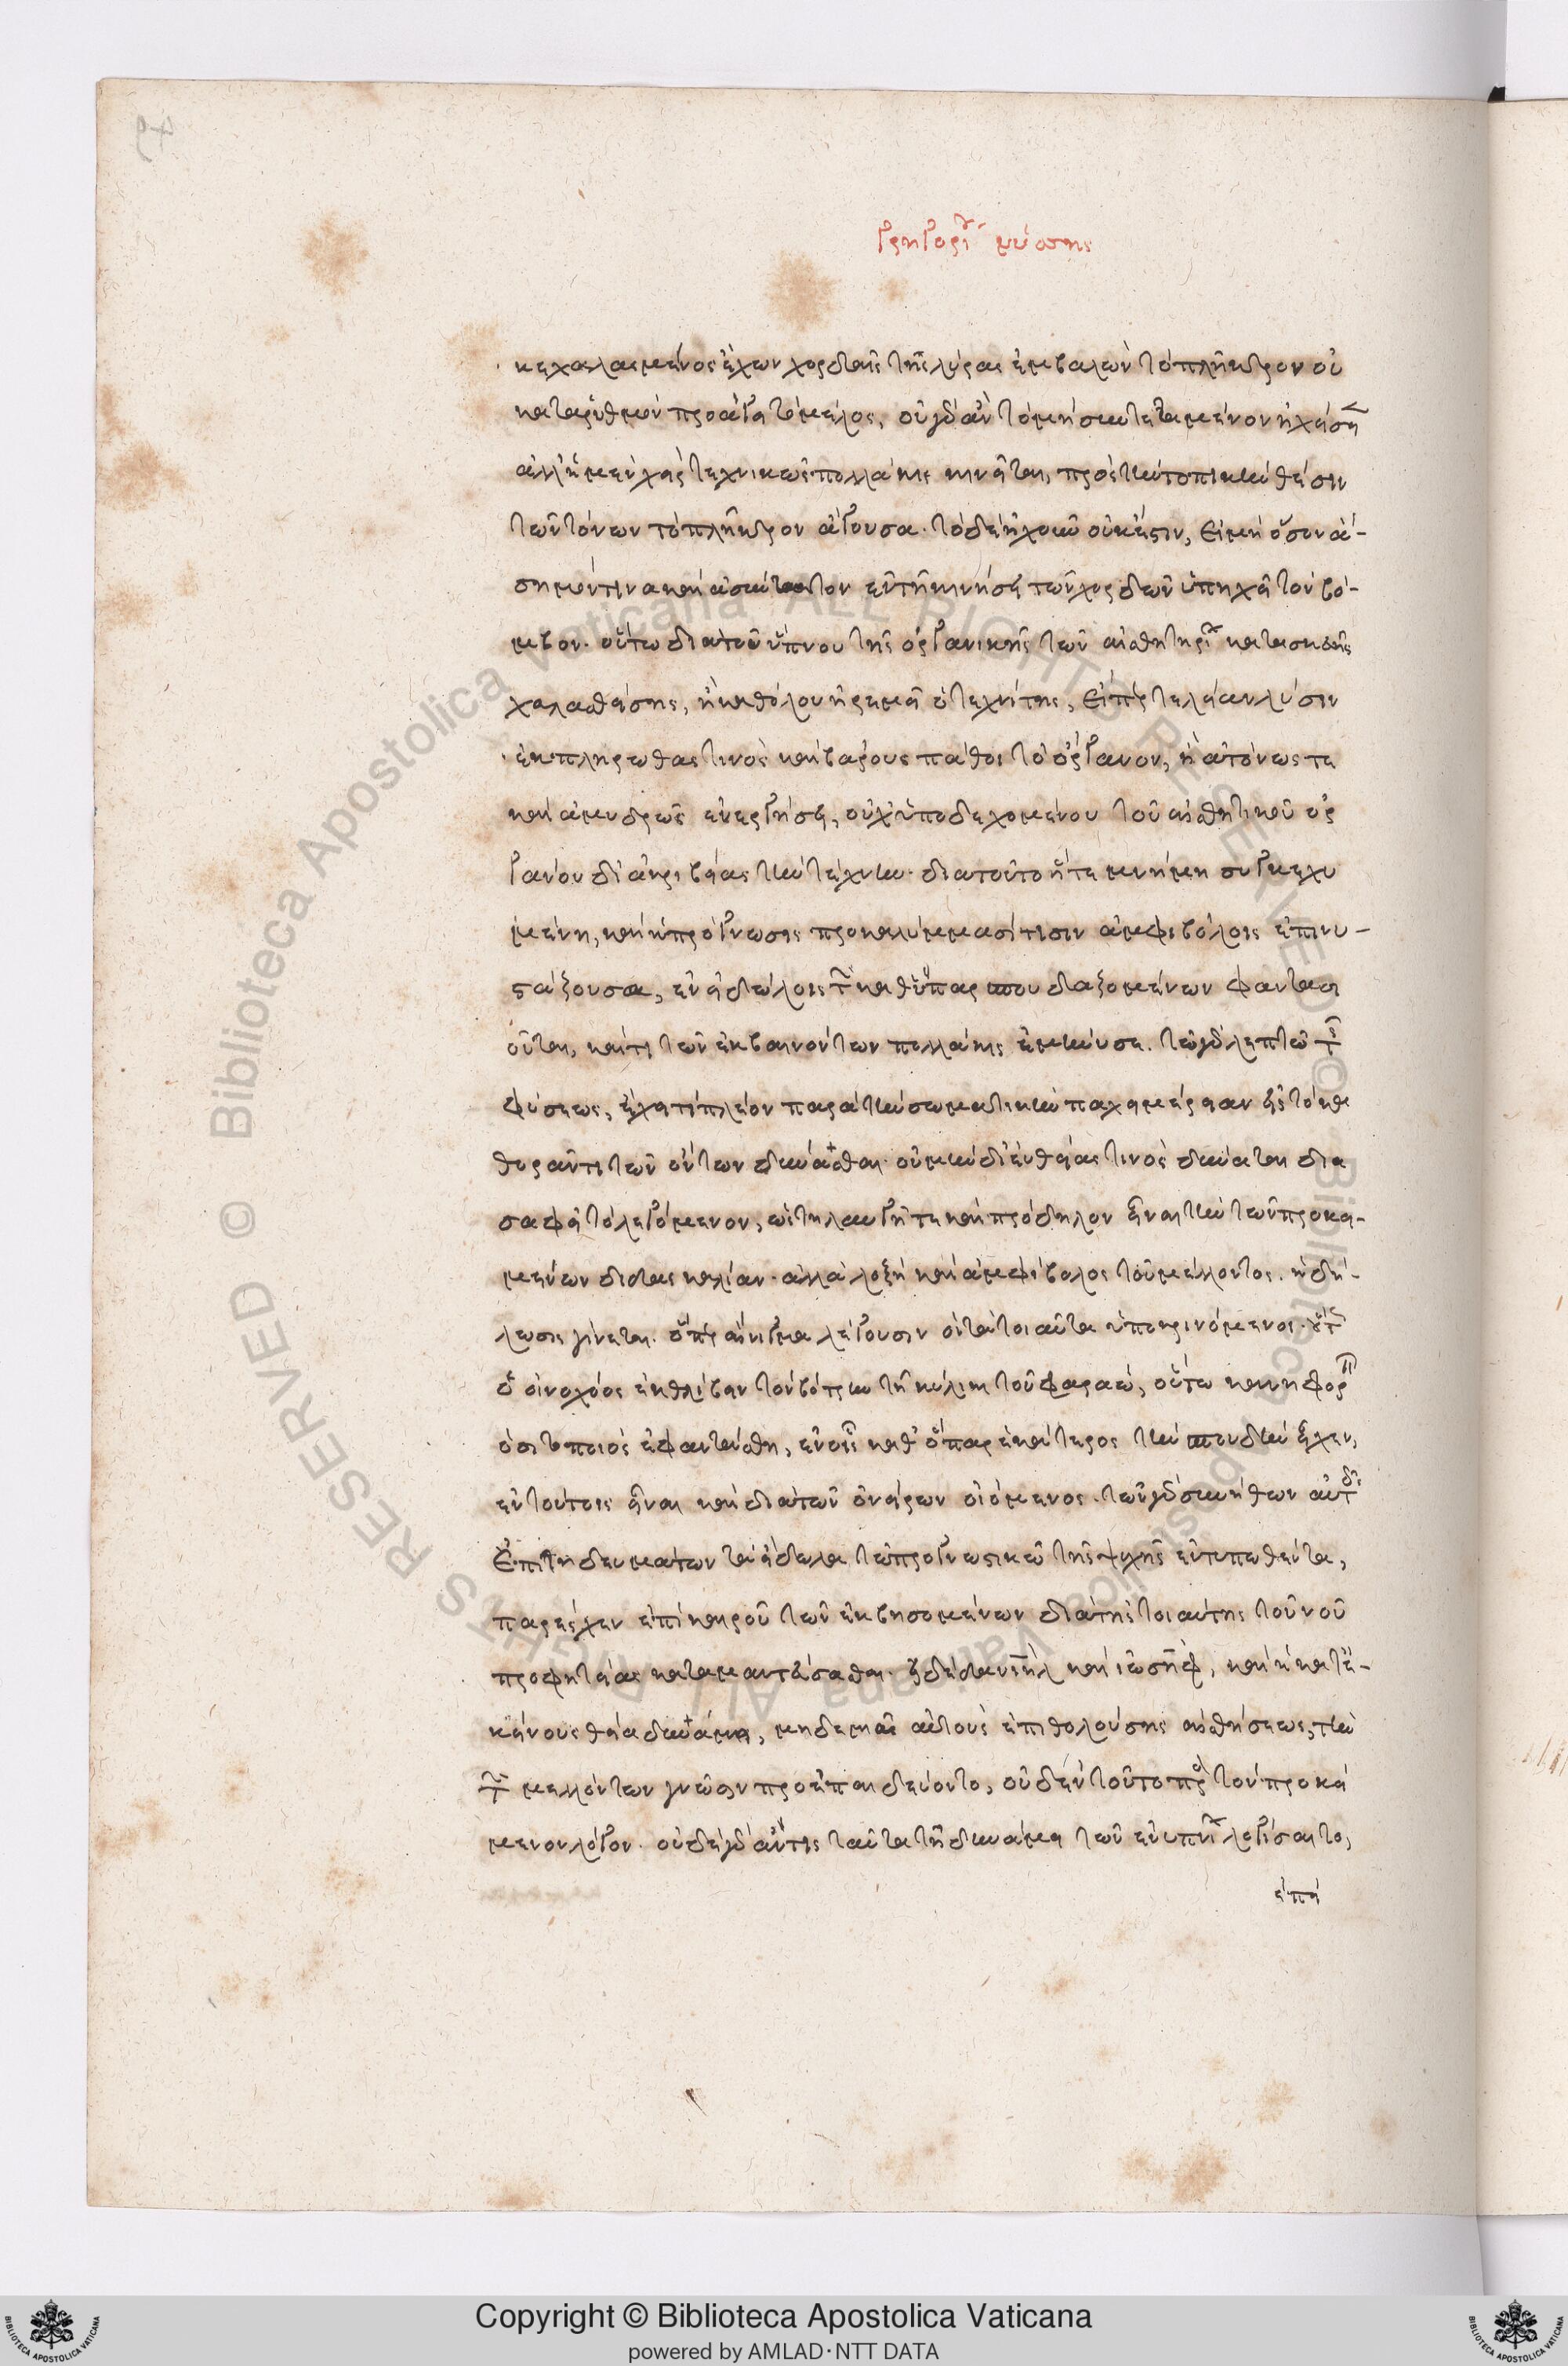 Γρηγορίου νύσσης
κεχαλασμένος ἔχων χορδαῖς τῆς λύρας ἐμβαλὼν τὸ πλῆκτρον οὐ
κατα ρυθμὸν προάγει τὸ μέλος, οὐ γὰρ ἂν τὸ μὴ συντεταμένον ἠχήσῃ
ἀλλ' ἡ μὲν χεὶρ τεχνικῶς πολλάκις κινεῖται, πρὸς τὴν τοπικὴν θέσιν
τῶν τόνων τὸ πλῆκτρον ἄγουσα. τὸ δὲ ἠχοῦν οὐκ ἔστιν, εἰ μὴ ὅσον ἄ-
σημόν τινα καὶ ἀσύντακτον ἐν τῇ κινήσει τῶν χορδῶν ὑπηχεῖ τὸν βό-
μβον. οὕτω διὰ τοῦ ὕπνου τῆς ὀργανικῆς τῶν αἰσθητηρίων κατασκευῆς
χαλασθείσης, ἢ καθόλου ἠρεμεῖ ὁ τεχνίτης, εἴπερ τελείαν λύσιν
ἐκ πληρώσεως τινὸς καὶ βάρους πάθοι τὸ ὄργανον, ἢ ἀτόνως τε
καὶ ἀμυδρῶς ἐνεργήσει, οὐχ ὑποδεχομένου τοῦ αἰσθητικοῦ ὀρ
γάνου δι' ἀκριβείας τὴν τέχνην. διὰ τοῦτο ἥτε μνήμη συγκεχυ
μένη, καὶ ἡ πρόγνωσις προκαλύμμασί τισιν ἀμφιβόλοις ἐπινυ-
στάζουσα, ἐν εἰδώλοις τῶν καθ' ὕπαρ σπουδαζομένων φαντασι
οῦται, καί τι τῶν ἐκβαινόντων πολλάκις ἐμήνυσε. τῷ γὰρ λεπτῷ τῆς
φύσεως, ἔχει τί πλέον παρὰ τὴν σωματικὴν παχυμέρειαν εἰς τὸ κα
θορᾶν τι τῶν ὄντων δύνασθαι. οὐ μὴν δι' εὐθείας τινὸς δύναται δια
σαφεῖ τὸ λεγόμενον, ὡς τηλαυγῆ τε καὶ πρόδηλον εἶναι τὴν τῶν προκει-
μένων διδασκαλίαν. ἀλλὰ λοξὴ καὶ ἀμφίβολος τοῦ μέλλοντος. ἡ δή-
λωσις γίνεται. ὅπερ αἴνιγμα λέγουσιν οἱ τὰ τοιαῦτα ὑποκρινόμενοι. οὕτως
ὁ οἰνοχόος ἐκθλίβειν τὸν βότρυν τῇ κύλικι τοῦ φαραώ, οὕτω κανηφορεῖν
ὁ σιτοποιὸς ἐφαντάσθη, ἐν οἷς καθ' ὕπαρ ἑκάτερος τὴν σπουδὴν εἶχεν,
ἐν τούτοις εἶναι καὶ διὰ τῶν ὀνείρων οἰόμενος. τῶν γὰρ συνήθων αὐτοῖς
ἐπιτηδευμάτων τὰ εἴδωλα τῷ προγνωστικῷ τῆς ψυχῆς ἐντυπωθέντα,
παρέσχεν ἐπὶ καιροῦ τῶν ἐκβησομένων διὰ τῆς τοιαύτης τοῦ νοῦ
προφητείας καταμαντεύσασθαι. εἰ δὲ δανιὴλ καὶ ἰωσὴφ, καὶ οἱ κατ' ἐ-
κείνους θείᾳ δυνάμει, μηδεμιᾶς αὐτοὺς ἐπιθολούσης αἰσθήσεως, τὴν
τῶν μελλόντων γνῶσιν προεπαιδεύοντο, οὐδὲν τοῦτο πρὸς τὸν προκεί
μενον λόγον. οὐδὲ γὰρ ἄν τις ταῦτα τῇ δυνάμει τῶν ἐνυπνίων λογίσαιτο,
ἐπεὶ